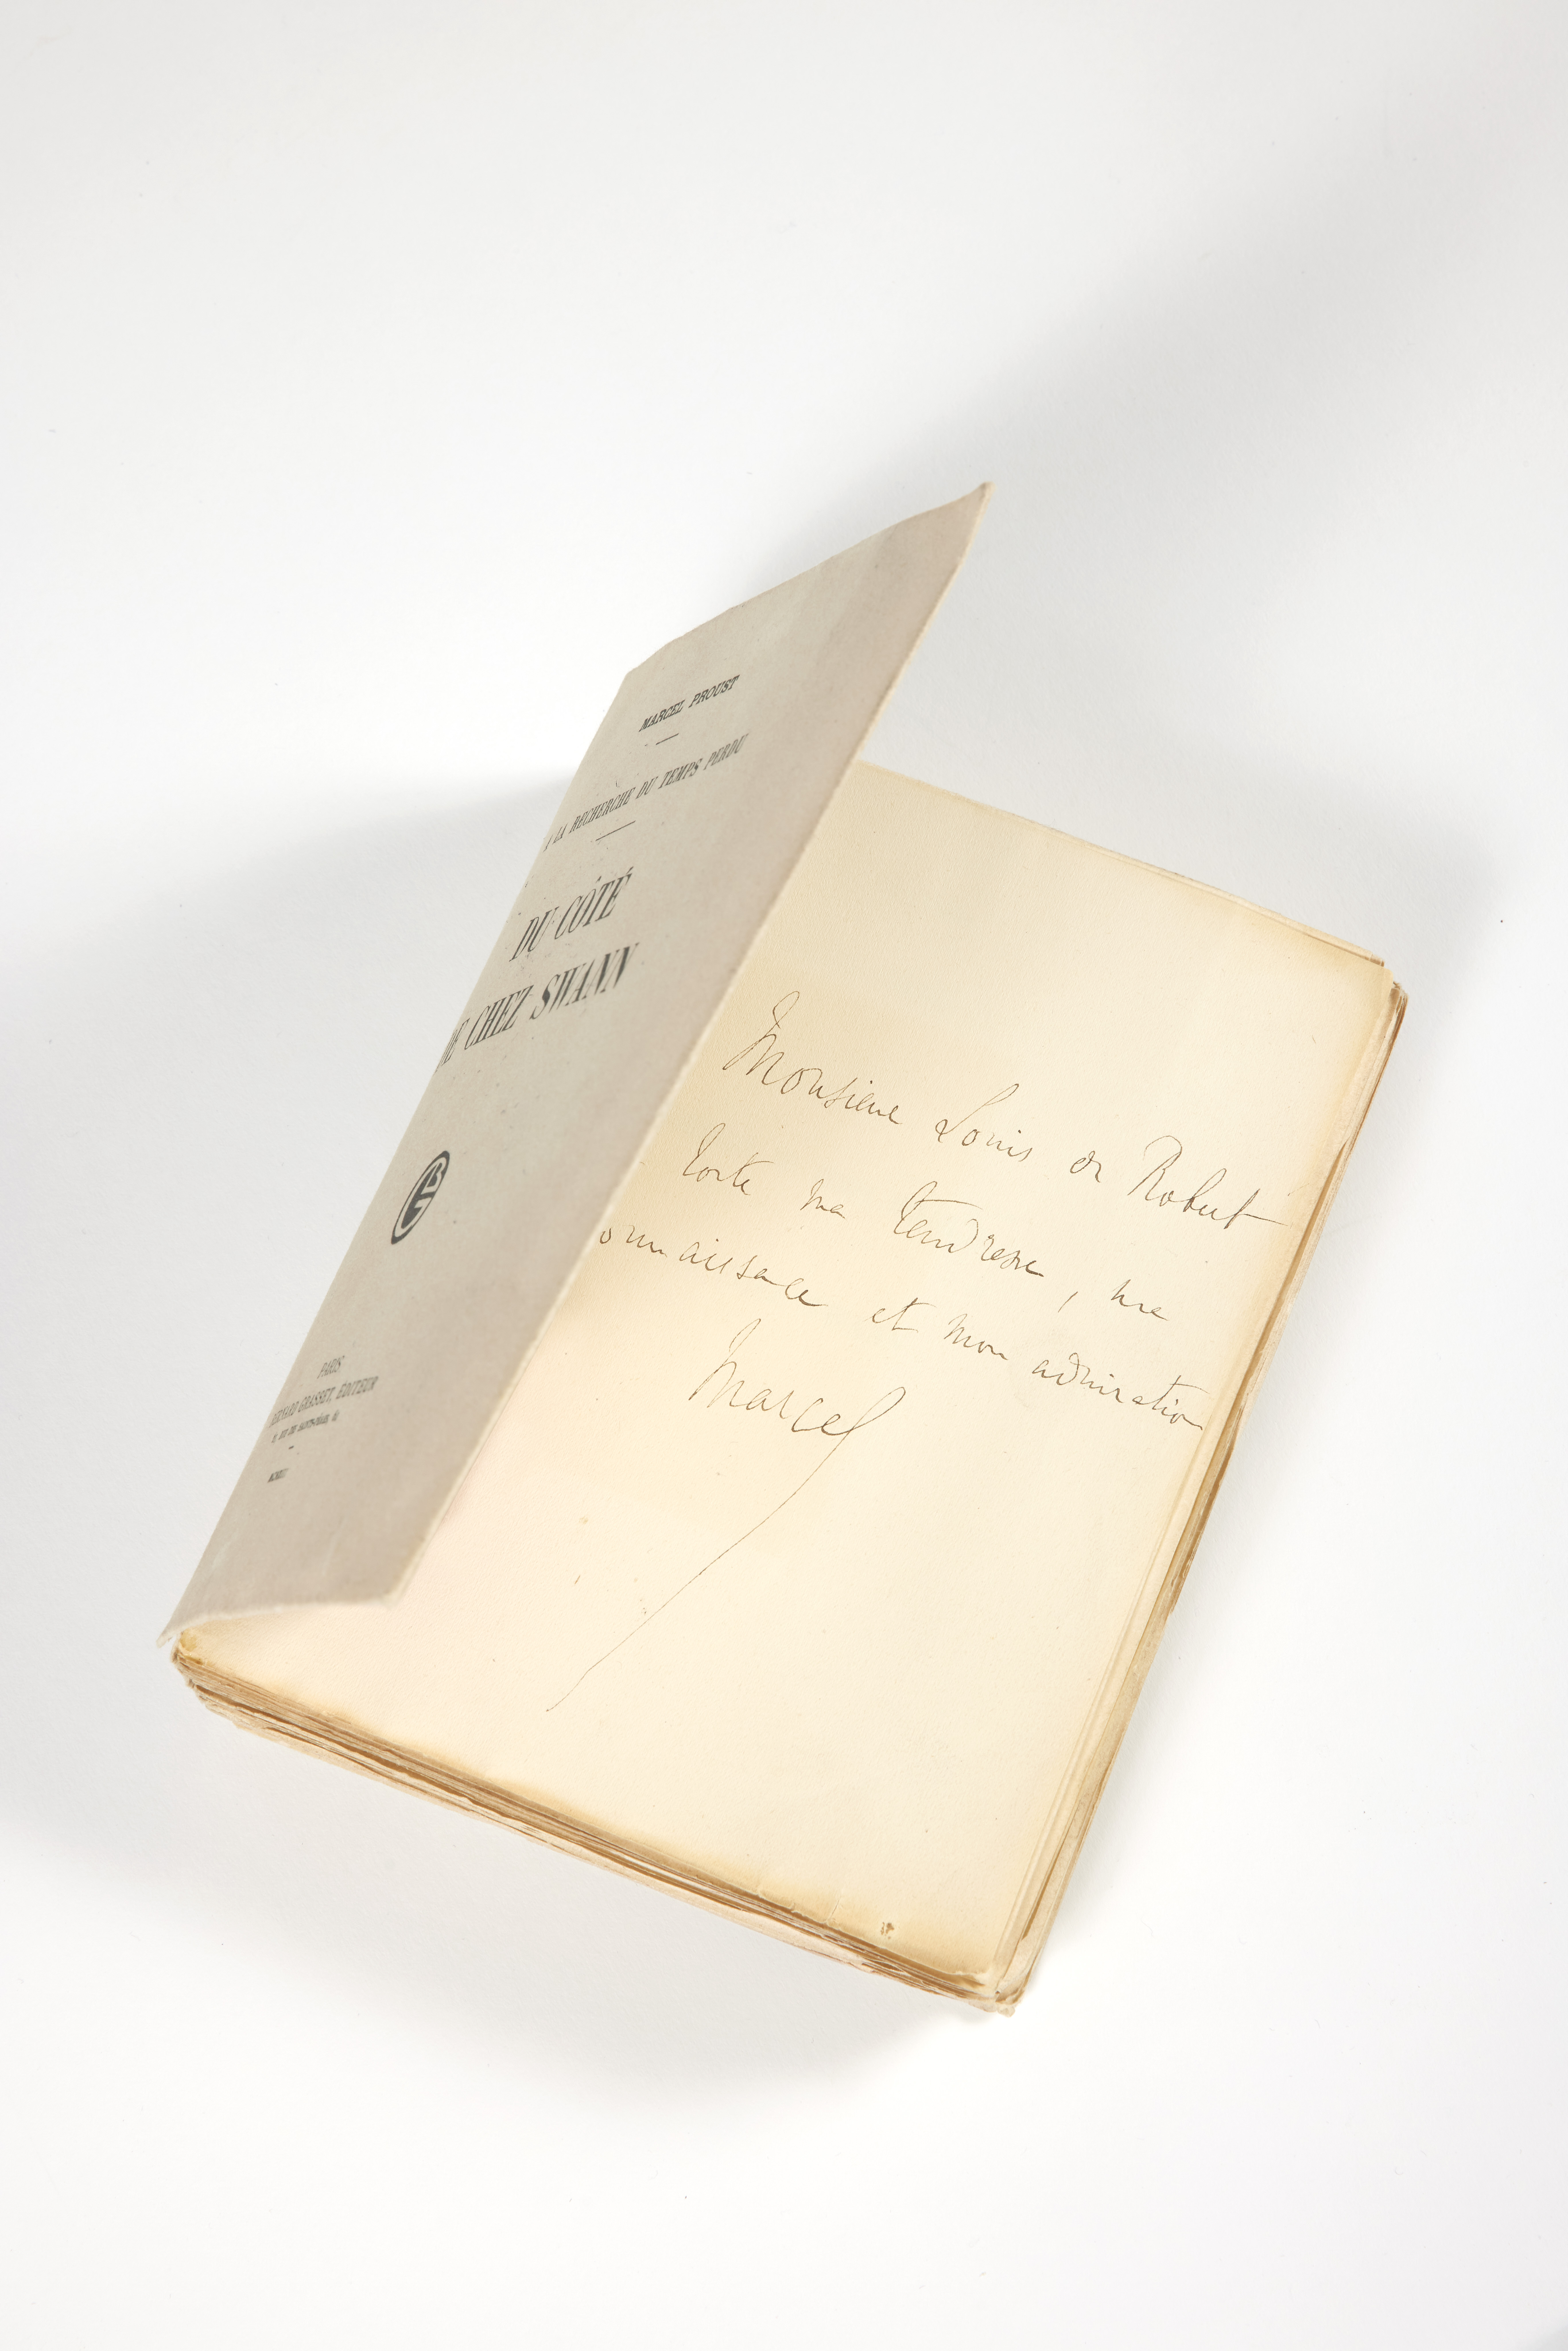 MARCEL PROUST
A LA RECHERCHE DU TEMPS PERDU
DU CÔTÉ
DE CHEZ SWANN
PARIS
BERNARD GRASSET, ÉDITEUR
Monsieur Louis de Robert
toute ma tendresse, ma
onnaissance et mon admiration
Marcel